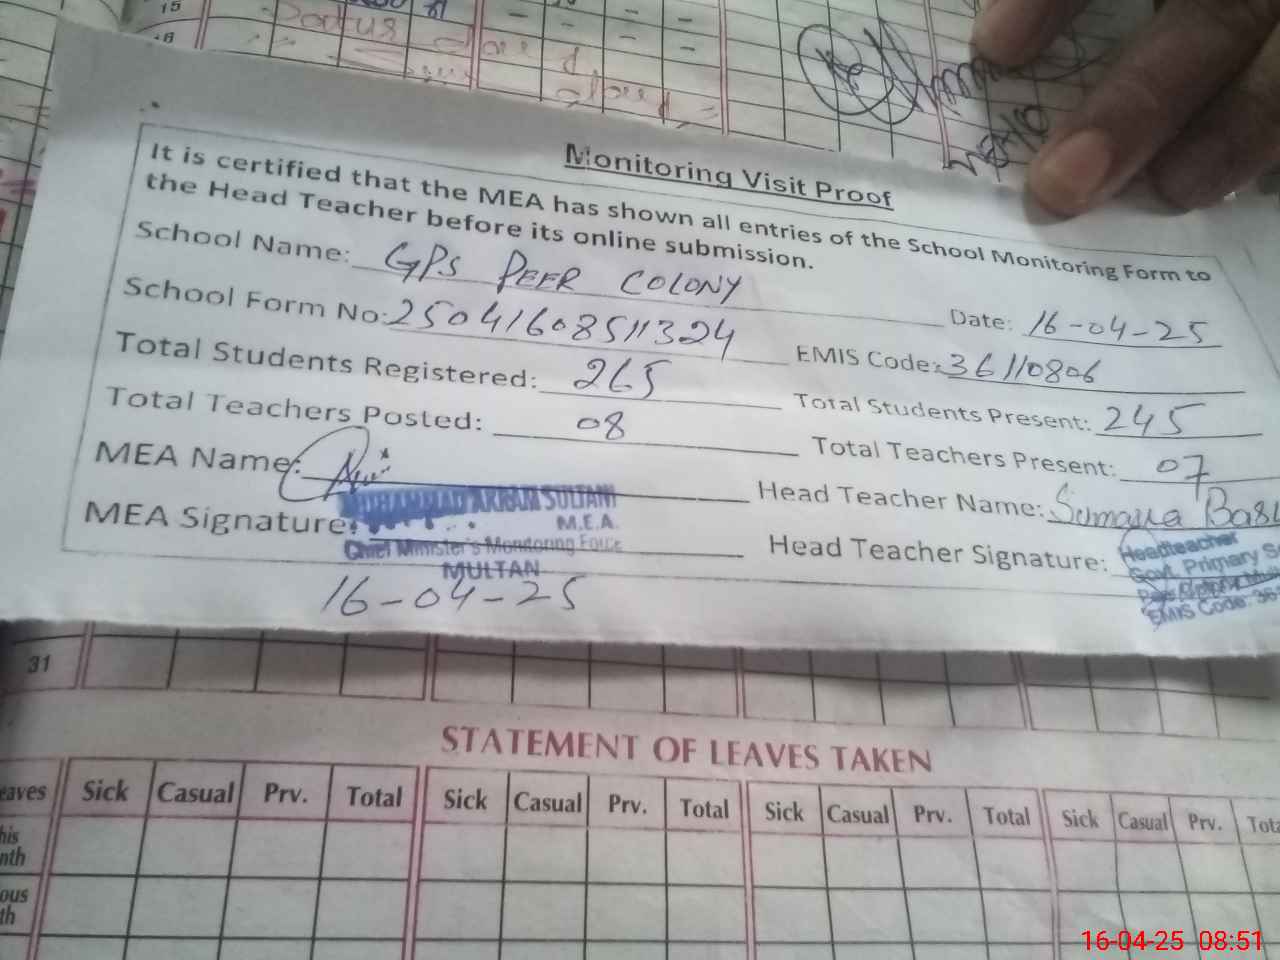 15
16
Monitoring Visit Proof
It is certified that the MEA has shown all entries of the School Monitoring Form to
the Head Teacher before its online submission.
School Name: GPS PEER COLONY
Date: 16-04-25
School Form No: 25041608511324
EMIS Code: 36110806
Total Students Registered: 265
Total Students Present: 245
Total Teachers Posted: 08
Total Teachers Present: 07
MEA Name:
Head Teacher Name: Sumaira
MEA Signature:
Head Teacher Signature:
MUHAMMAD AKRAM SULTANI
M.E.A.
Chief Minister's Monitoring Force
MULTAN
16-04-25
Headteacher
Govt. Primary
EMIS Code: 36
31
STATEMENT OF LEAVES TAKEN
eaves Sick Casual Prv. Total Sick Casual Prv. Total Sick Casual Prv. Total Sick Casual Prv. Tota
his
nth
ous
th
16-04-25 08:51